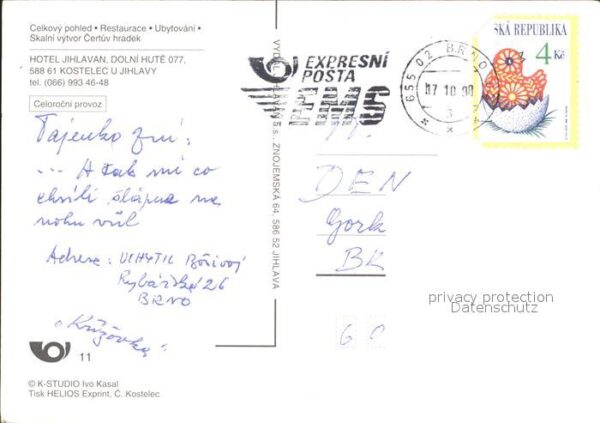 Celkový pohled • Restaurace • Ubytování •
Skalní výtvor Čertův hrádek
HOTEL JIHLAVAN, DOLNÍ HUTĚ 077,
588 61 KOSTELEC U JIHLAVY
tel. (066) 993 46-48
Celoroční provoz
Tajenka zní:
... A tak mi co
chvíli šlápne na
nohu vůl
Adresa: UCHYTIL Bořivoj
Rybářská 26
BRNO
"Křížovka"
11
© K-STUDIO Ivo Kasal
Tisk HELIOS Exprint, Č. Kostelec
JIHLAVAN a.s., ZNOJEMSKÁ 64, 586 52 JIHLAVA
EXPRESNÍ
POŠTA
EMS
655 02 BRNO 2
07 10 98
SKÁ REPUBLIKA
4 Kč
DEN
Gork
BR
60
privacy protection
Datenschutz